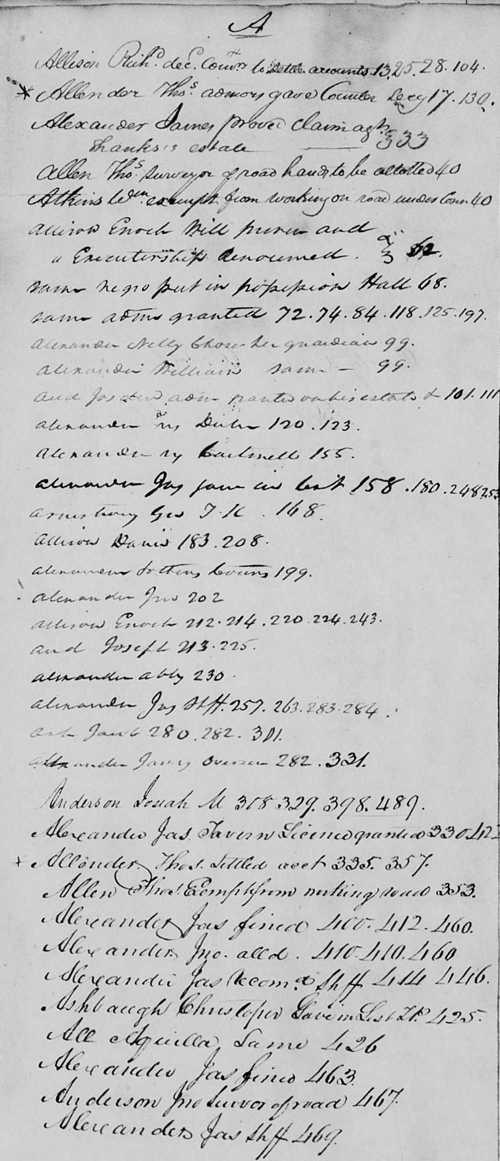 A
Allison Rich.d dec. Com.rs to settle accounts 13, 25. 28. 104.
* Allender Tho.s admors gave Counter Secy 17. 130.
Alexander James proved claim agt 333
Shanks's estate
Allen Tho.s surveyor of road hands to be allotted 40
Atkins Wm exempt from working on road under Conn 40
Allison Enoch Will proven and
" Executorship renounced. 62
same negro put in possession Hall 68.
same adms granted 72. 74. 84. 118. 125. 197.
Alexander Nelly Chose her guardian 99.
Alexander William same - 99.
and adm granted on his estate 101. 111
Alexander vs 120. 123.
Alexander vs 155.
Alexander Jas in list 158. 180. 248 253
Armstrong Geo 168.
Allison Davis 183. 208.
Alexander 199.
Alexander Jno 202
Allison Enoch 212. 214. 220. 224. 243.
and Joseph 213. 225.
Alexander Ably 230.
Alexander Jas Shff. 257. 263. 283. 284.
Ash Jacob 280. 282. 301.
Alexander James Overseer 282. 331.
Anderson Josiah M 318 329. 398. 489.
Alexander Jas. Tavern Licence granted 330. 423
+ Allender Thos. Settled acct 335. 357.
Allen Thos Exempt from working road 353.
Alexander Jas fined 400. 412. 460.
Alexander Jno. alld. 410. 410. 460
Alexander Jas Recom.d Shff 414 446.
Ashbaugh Christopher Gave in List TP. 425.
All Aquilla, Same 426
Alexander Jas fined 463.
Anderson Jno Survor of road 467.
Alexander Jas Shff 469.